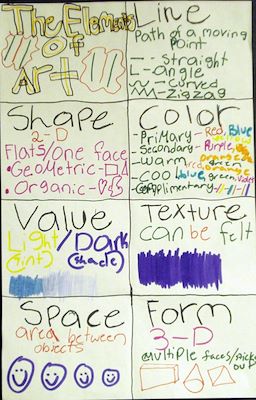 The Elements
Of
Art
Line
Path of a moving
Point
Straight
L-angle
Curved
Zigzag
Shape
2-D
Flats/One face
GeoMetric-
Organic-
Color
-PriMary-Red, Blue
yellow
-Secondary-Purple,
orange
green
-Warm red
orange
-Cool blue, green, violet
-Complimentary-
Value
Light/Dark
(tint) (shade)
Texture
can be felt
Space
area between
objects
Form
3-D
Multiple faces/sticks
out